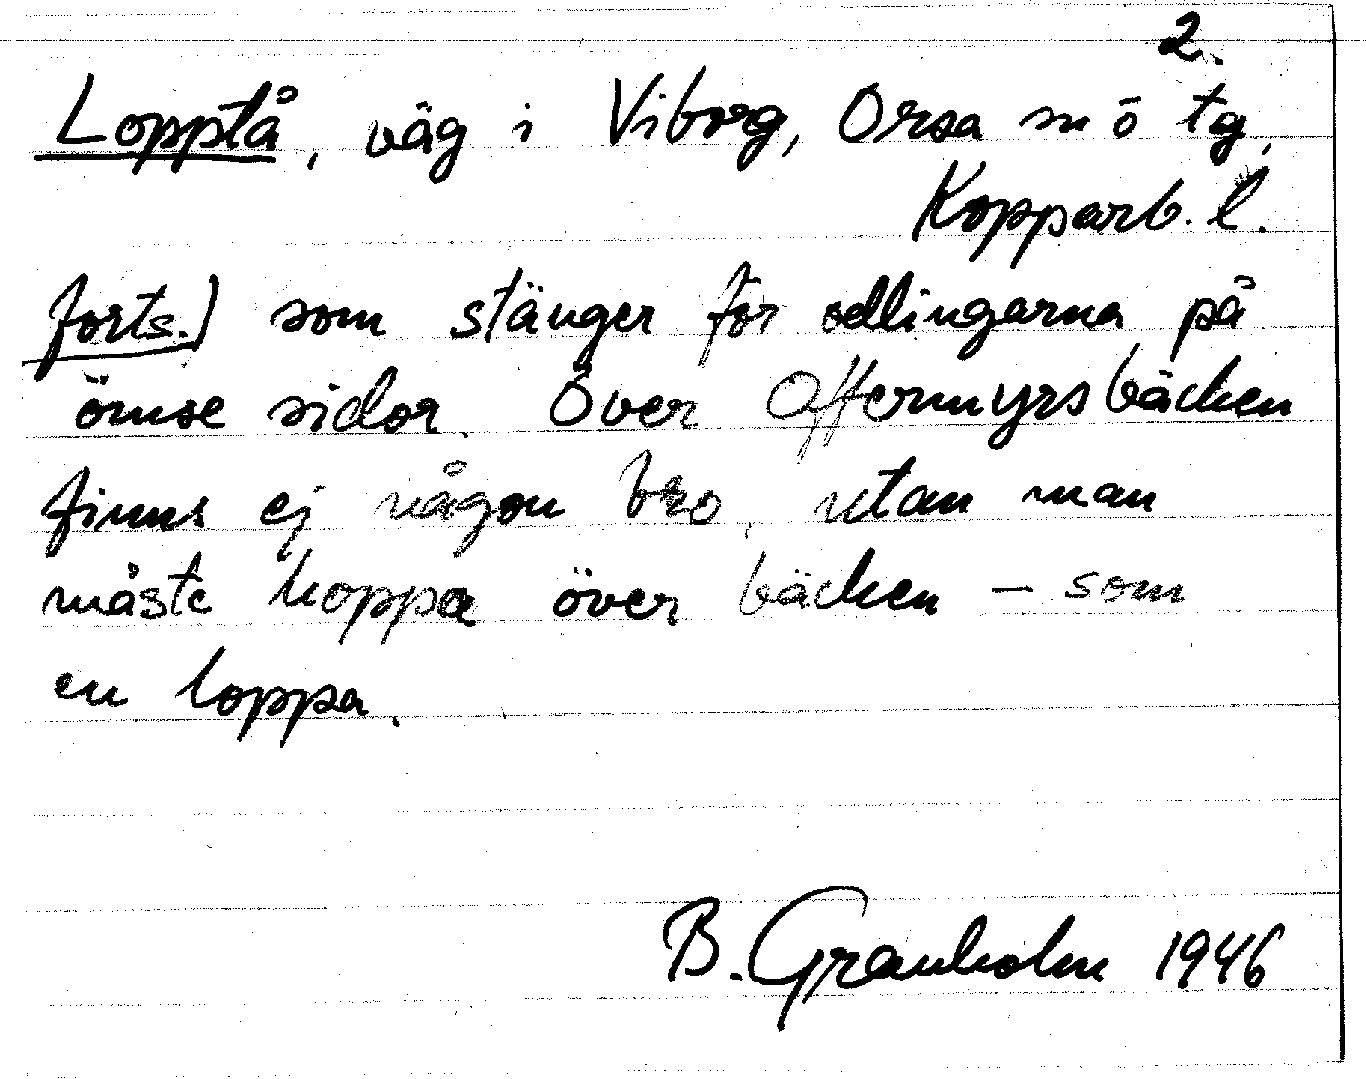 2.
Lopptå, väg i Viborg, Orsa sn ö tg,
Kopparb. l.
forts.) som stänger för odlingarna på
ömse sidor. Över Offermyrsbäcken
finns ej någon bro, utan man
måste hoppa över bäcken – som
en loppa.
B. Granholm 1946